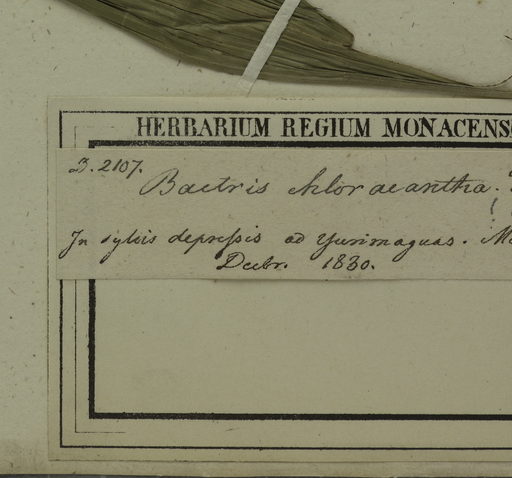 HERBARIUM REGIUM MONACENS
D. 2107.
Bactris chloracantha.
In sylvis depressis ad Yurimaguas. M
Decbr. 1830.